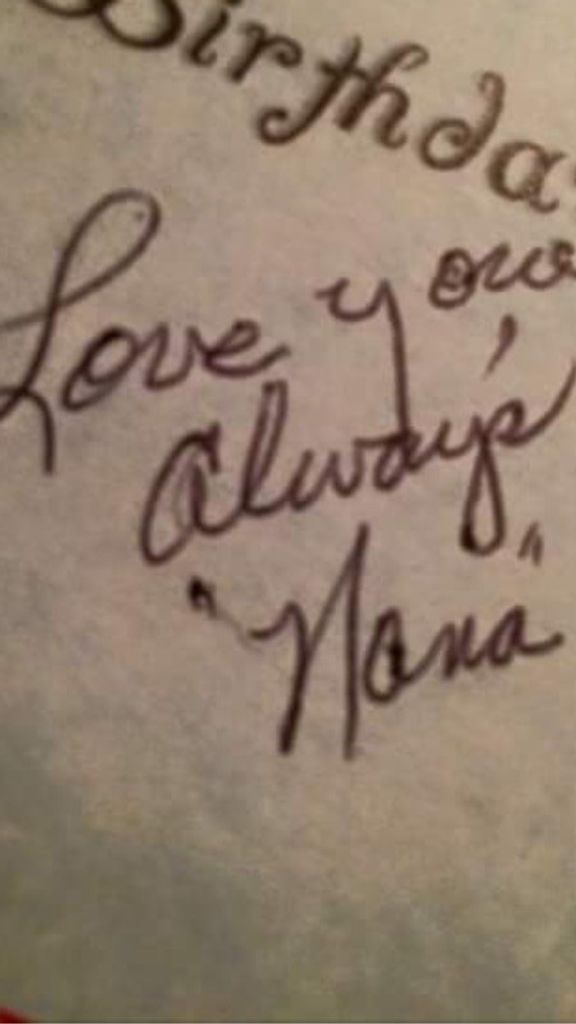 Birthda
Love you,
Always
"Nana"